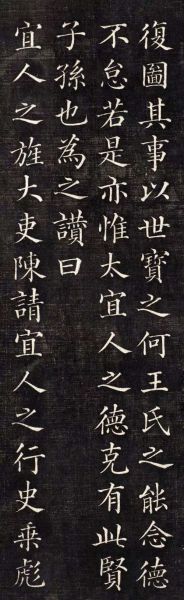 復圖其事以世寶之何王氏之能念德
不怠若是亦惟太宜人之德克有此賢
子孫也為之讚曰
宜人之旌大吏陳請宜人之行史乘彪